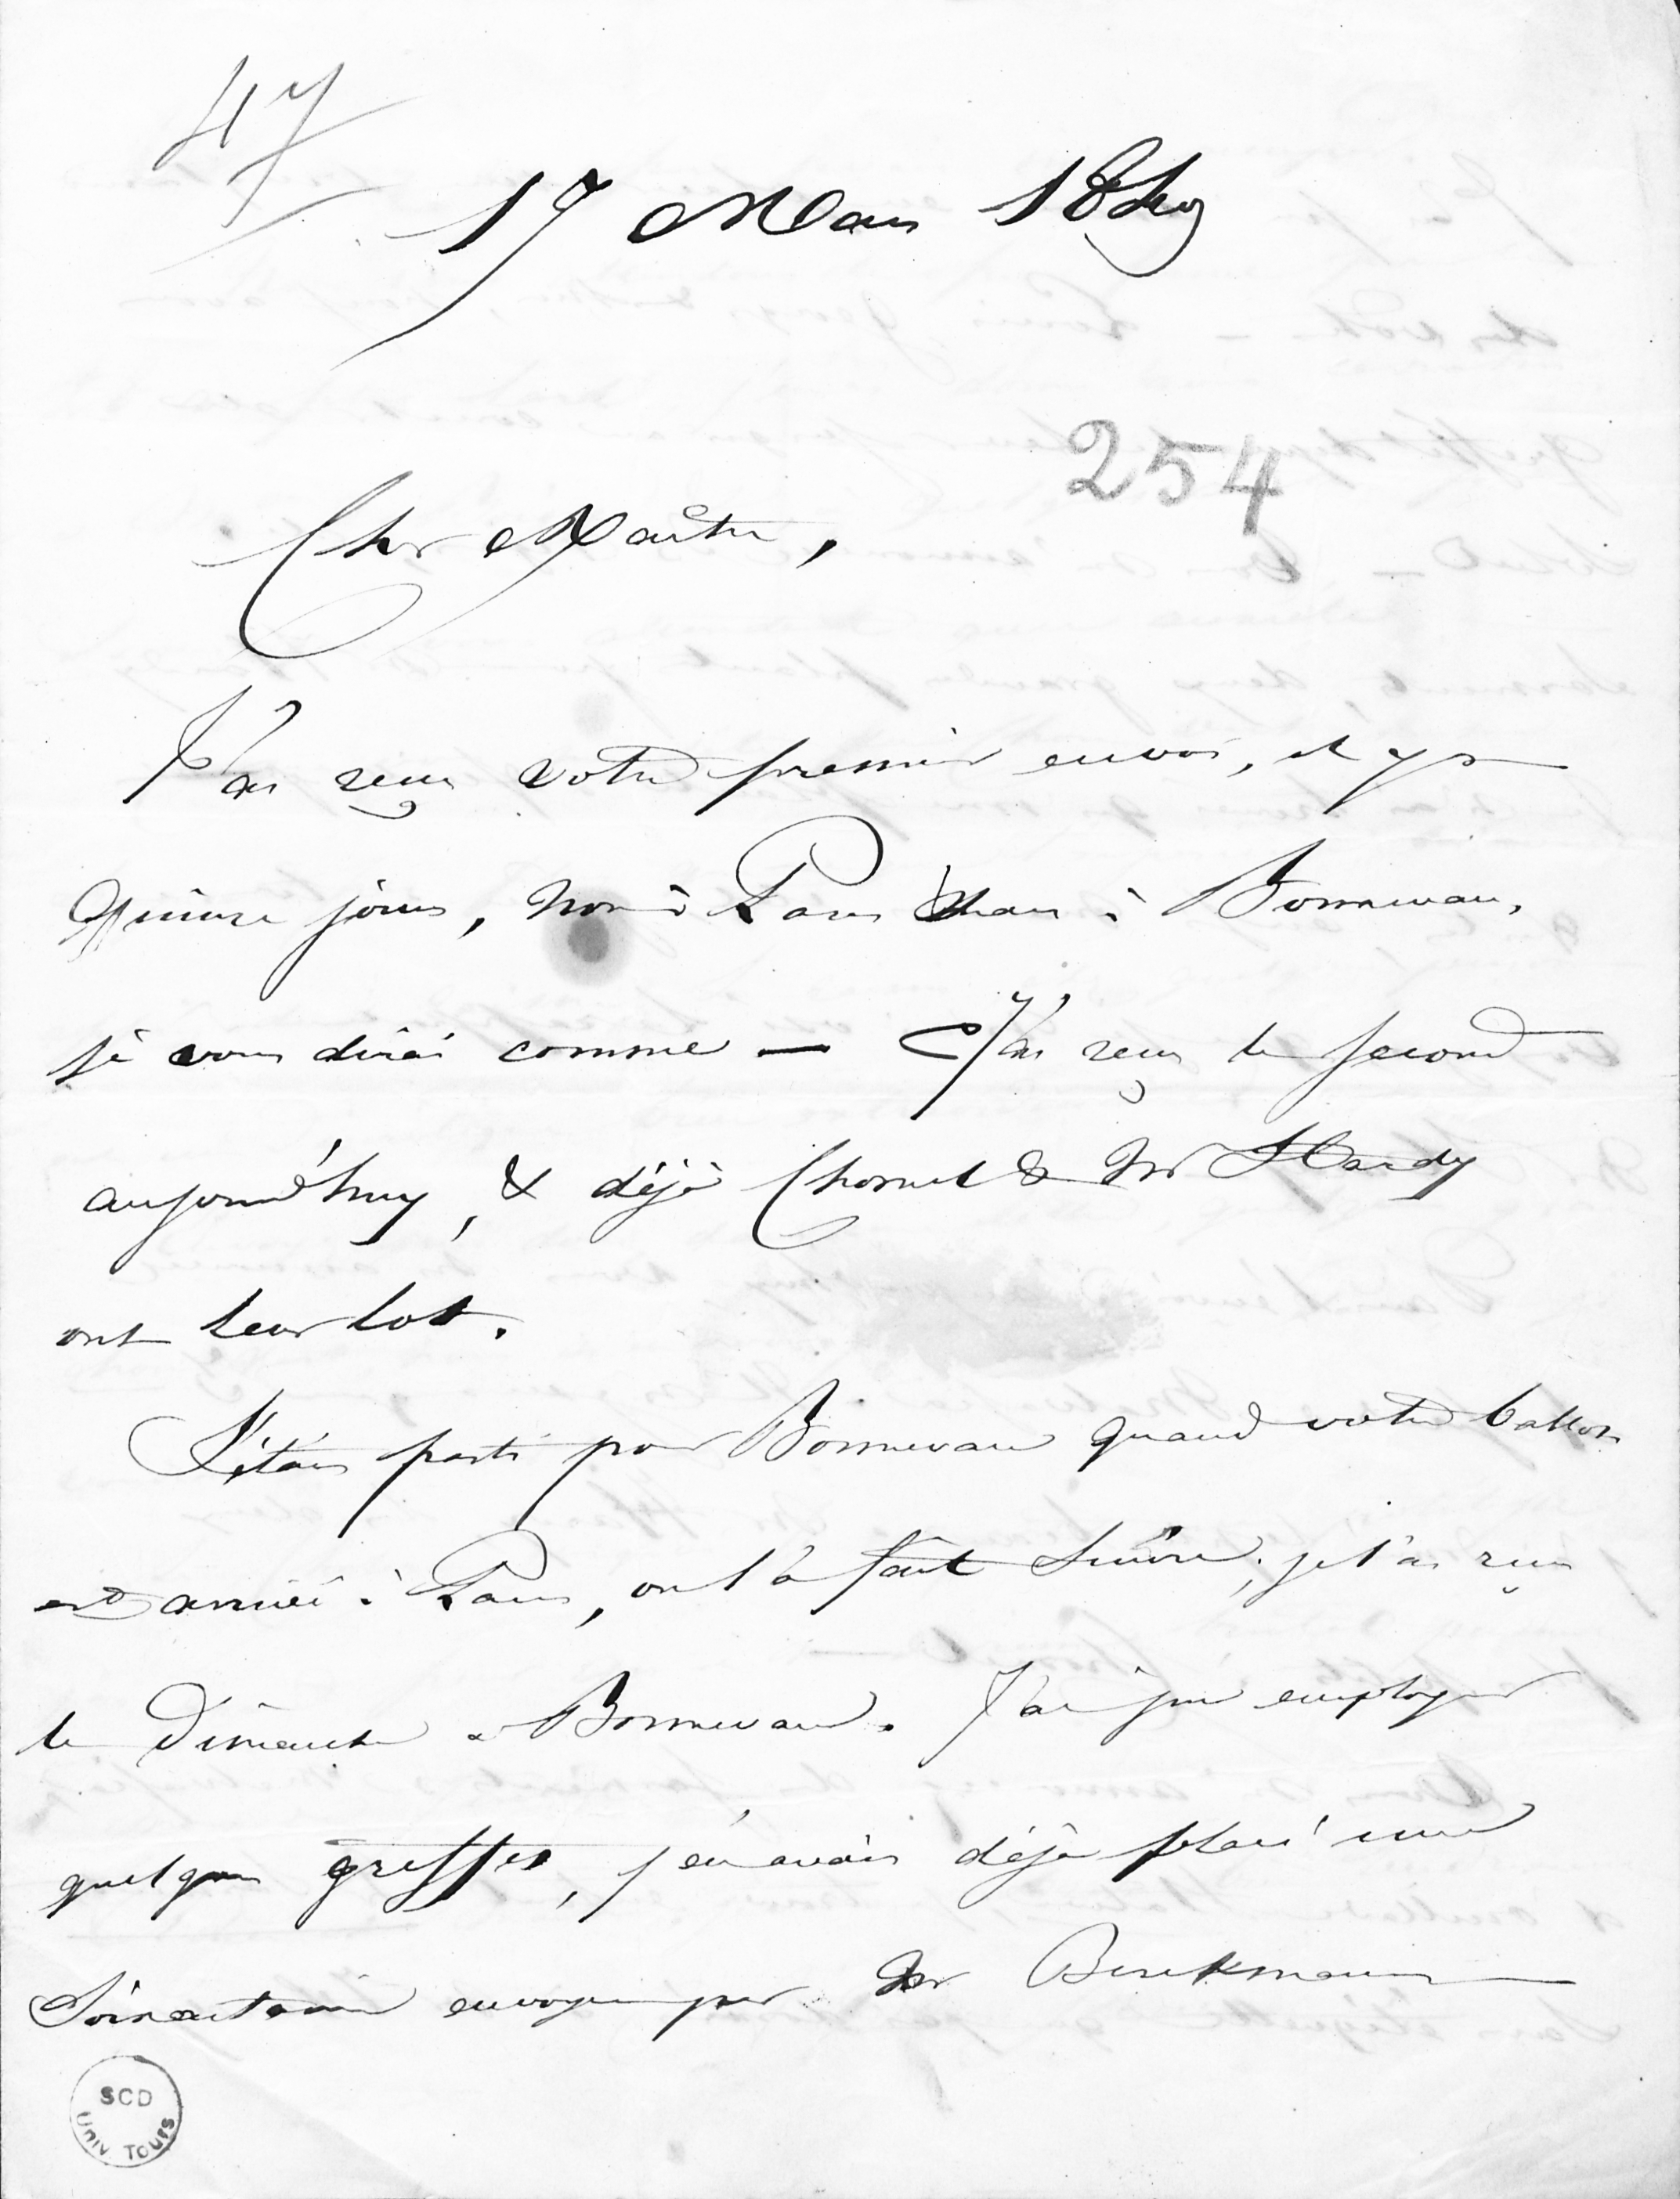 47
17 Mars 1849
254
Cher Maître,
J'ai reçu votre premier envoi, il y a
quinze jours, non à Paris mais à Bonnevau,
je vous dirai comme — J'ai reçu le second
aujourd'huy, & déjà Chomel & Mr Hardy
ont leur lot.
J'étais parti pour Bonnevau quand votre ballot
est arrivé à Paris, on l'a fait suivre, je l'ai reçu
le Dimanche à Bonnevau. J'ai pu employer
quelques greffes, j'en avais déjà placé une
soixantaine envoyée par Mr
SCD
Univ TOURS